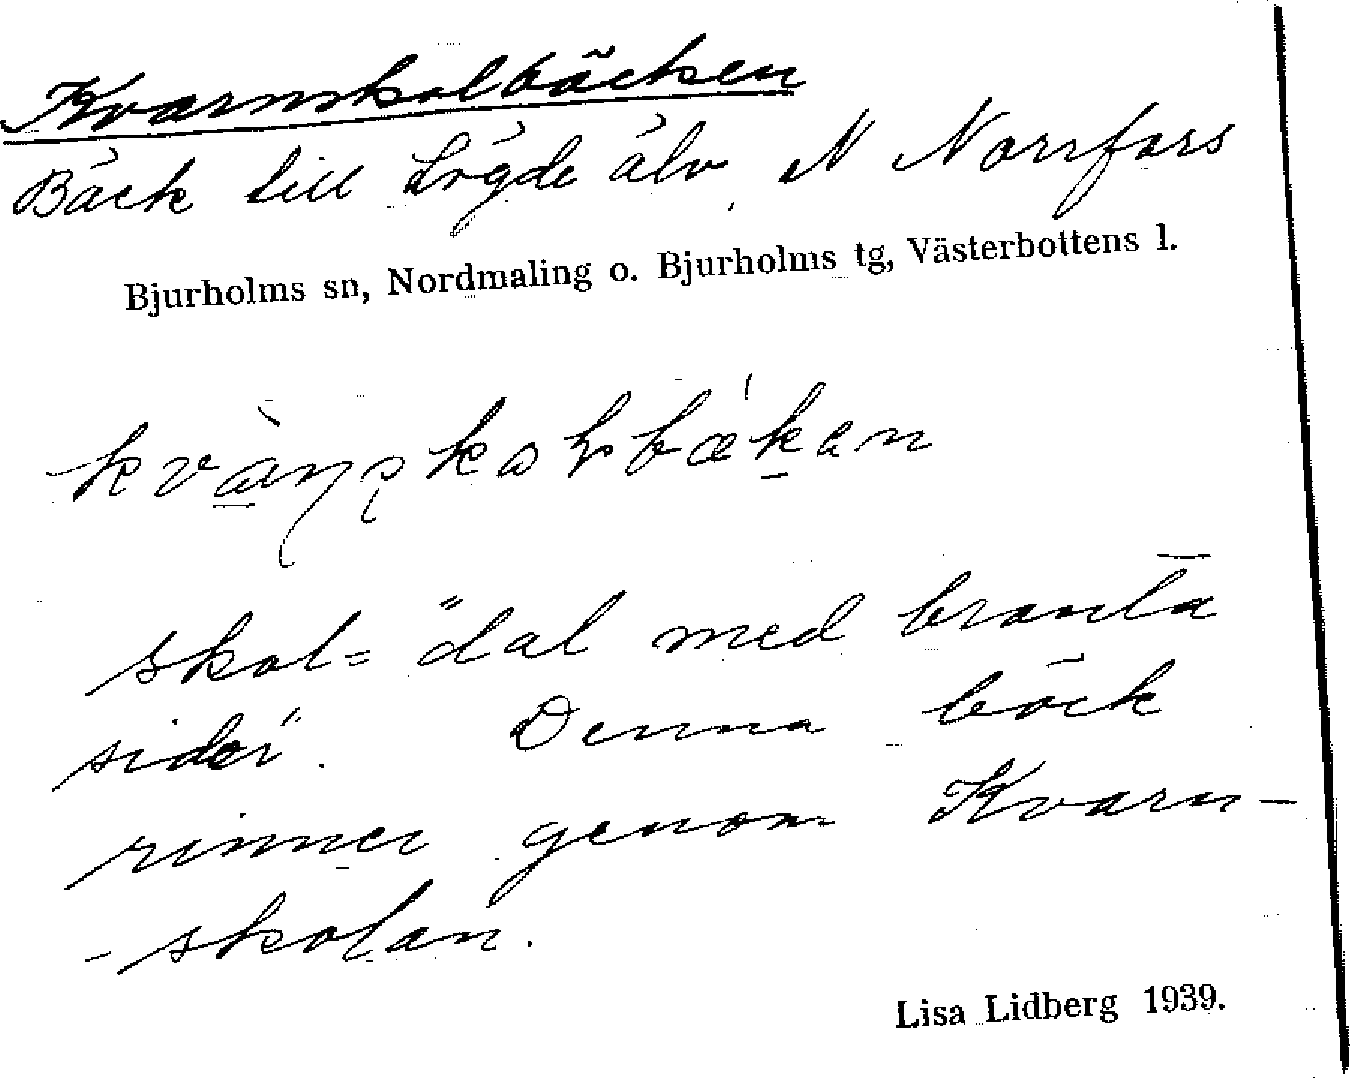 Kvarnskolbäcken
Bäck till Lögde älv, N Norrfors
Bjurholms sn, Nordmaling o. Bjurholms tg, Västerbottens l.
skol = "dal med branta
sidor". Denna bäck
rinner genom Kvarn-
-skolan.
Lisa Lidberg 1939.